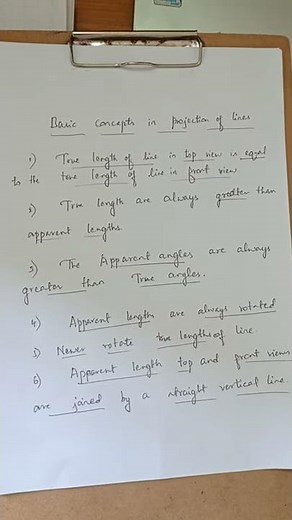 Basic concepts in projection of lines
1) True length of line in top view is equal
to the true length of line in front view.
2) True length are always greater than
apparent lengths.
3) The Apparent angles are always
greater than True angles.
4) Apparent lengths are always rotated
5) Never rotate true lengths of line.
6) Apparent length top and front views
are joined by a straight vertical line.